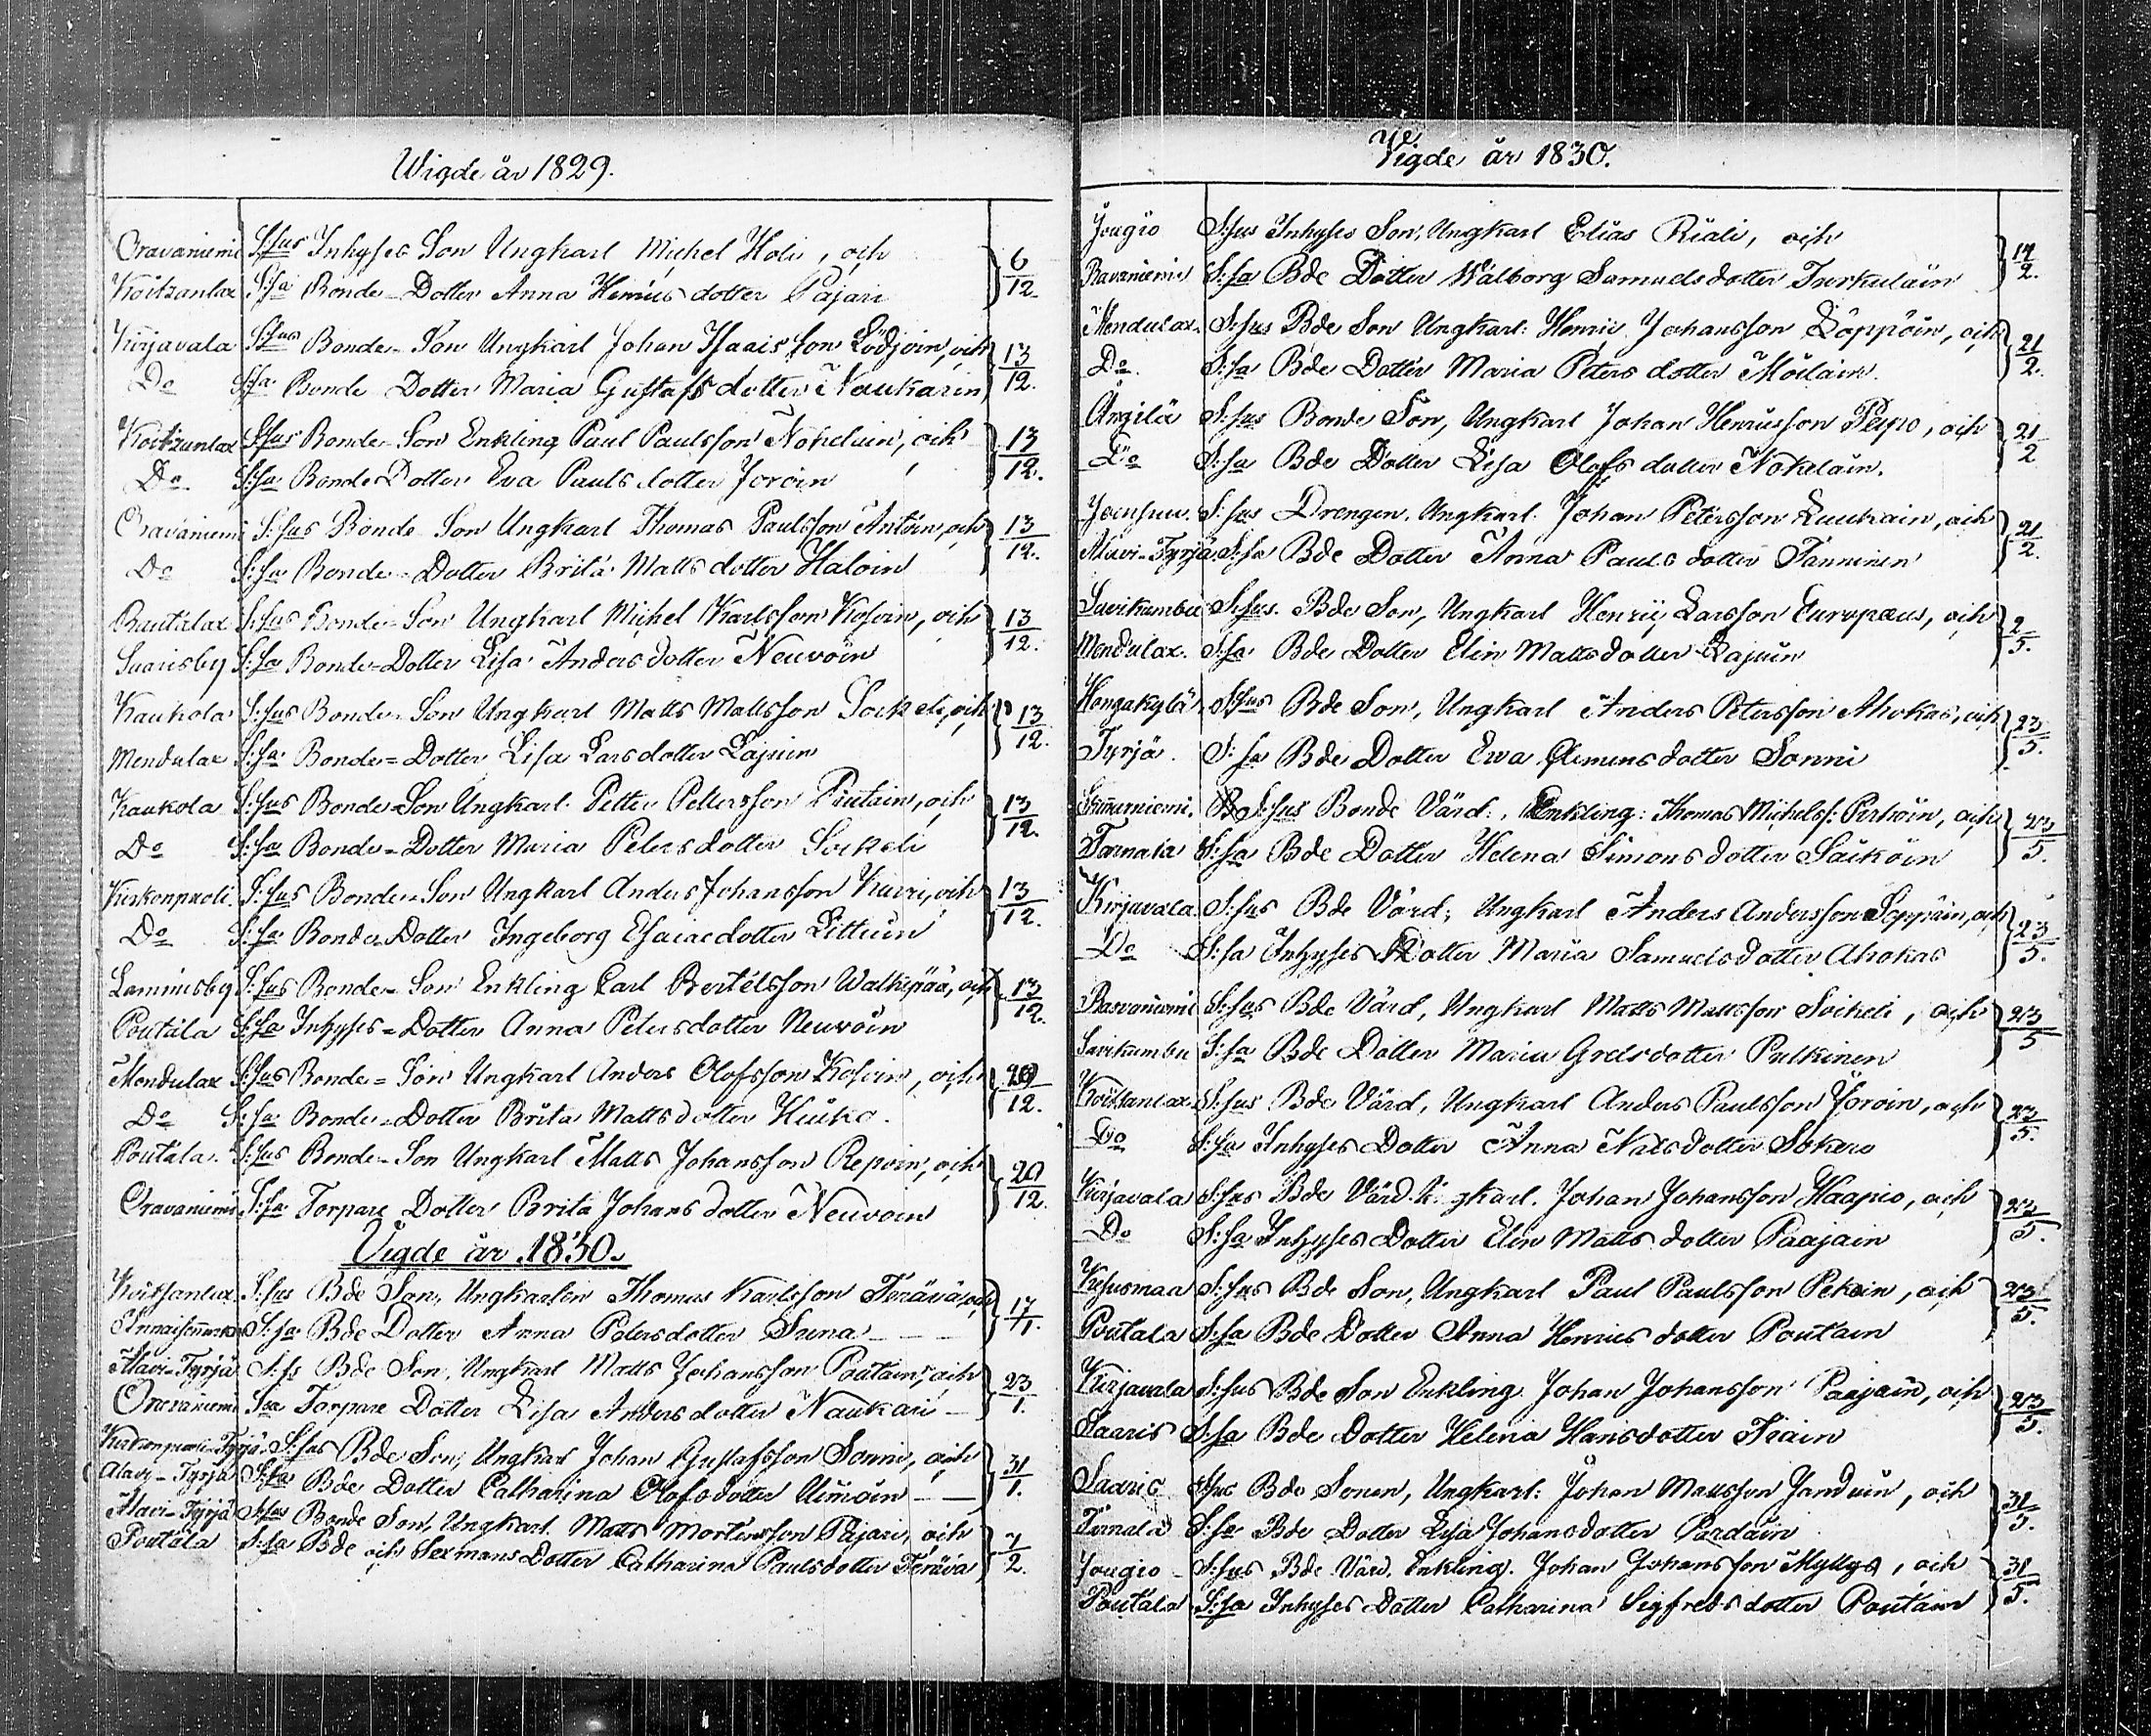 Wigde år 1829.
Oravaniemi S:sus Inhyses Son Ungkarl Michel Holi, och
Koitsanlax S:sa Bonde-Dotter Anna Henrics dotter Pajari } 6/12
Kirjavala S:sus Bonde-Son Ungkarl Johan Isaacsson Lödjöin, och
Do S:sa Bonde Dotter Maria Gustafs dotter Naukarin } 13/12.
Koitsanlax S:sus Bonde-Son Enkling Paul Paulsson Nokelain, och
Do S:sa Bonde Dotter Eva Pauls dotter Joroin } 13/12.
Oravaniemi S:sus Bonde Son Ungkarl Thomas Paulsson Antoin, och
Do S:sa Bonde-Dotter Brita Matts dotter Haloin } 13/12.
Rautalax S:sus Bonde-Son Ungkarl Michel Karlsson Kosoin, och
Saarisby S:sa Bonde-Dotter Lisa Anders dotter Neuvoin } 13/12.
Kaukola S:sus Bonde-Son Ungkarl Matts Mattsson Soikeli, och
Mendulax S:sa Bonde=Dotter Lisa Lars dotter Lajuin } 13/12.
Kaukola S:sus Bonde-Son Ungkarl Petter Pettersson Poutain, och
Do S:sa Bonde=Dotter Maria Petersdotter Soikeli } 13/12.
Kirkonpuoli. S:sus Bonde-Son Ungkarl Anders Johansson Kurri, och
Do S:sa Bonde Dotter Ingeborg Esaiaedotter Littuin } 13/12.
Lamminsby S:sus Bonde-Son Enkling Carl Bertelsson Walkipää, och
Poutala S:sa Inhyses=Dotter Anna Petersdotter Neuvoin } 13/12.
Mendulax S:sus Bonde=Son Ungkarl Anders Olofsson Kosoin, och
Do S:sa Bonde-Dotter Brita Matts dotter Kiuko. } 20/12.
Poutala. S:sus Bonde-Son Ungkarl Matts Johansson Repoin, och
Oravaniemi S:sa Torpare Dotter Brita Johans dotter Neuvoin } 20/12.
Vigde år 1830.
Koitsanlax S:sus Bde Son, Ungkarlen Thomas Karlsson Terävä, och
S:sa Bde Dotter Anna Petersdotter Suna } 17/1.
Alavi-Tyrjä S:s Bde Son, Ungkarl Matts Johansson Poutain, och
Oravaniemi S:sa Torpare Dotter Lisa Anders dotter Naukari } 23/1.
Kirkonpuoli-Tyrjä S:sus Bde Son, Ungkarl Johan Gustafsson Sonni, och
Alavi-Tyrjä S:sa Bde Dotter Catharina Olofsdotter Uimoin } 31/1.
Alavi-Tyrjä S:sus Bonde Son, Ungkarl. Matts Mortensson Pajari, och
Poutala S:sa Bde och Sexmans Dotter Catharina Paulsdotter Terävä } 7/2.
Vigde år 1830.
Jougio S:sus Inhyses Son, Ungkarl Elias Riali, och
Ravaniemi S:sa Bde Dotter Walborg Samuelsdotter Turkulain } 14/2.
Mendulax. S:sus Bde Son Ungkarl: Henric Johansson Löppöin, och
Do. S:sa Bde Dotter Maria Peters dotter Moilain. } 21/2.
Angilä S:sus Bonde Son, Ungkarl Johan Henricsson Peipo, och
Do S:sa Bde Dotter Lisa Olofs dotter Nokelain. } 21/2
Joensuu. S:sus Drengen, Ungkarl. Johan Petersson Luukain, och
Alavi-Tyrjä S:sa Bde Dotter Anna Pauls dotter Tanninen } 21/2.
Savikumbu S:sus. Bde Son, Ungkarl Henric Larsson Europaeus, och
Mendulax. S:sa Bde Dotter Elin Mattsdotter Lajuin } 2/5.
Hongakylä S:sus Bde Son, Ungkarl Anders Petersson Ahokas, och
Tyrjä. S:sa Bde Dotter Ewa Clemens dotter Sonni } 23/5.
S:sus Bonde Värd:, Enkling: Thomas Michelss: Pirhoin, och
Tarnala S:sa Bde Dotter Helena Simons dotter Säiköin } 23/5.
Kirjavala S:sus Bde Värd; Ungkarl Anders Andersson Seppäin, och
Do S:sa Inhyses Dotter Maria Samuelsdotter Ahokas } 23/5.
Rasvaniemi S:sus Bde Värd, Ungkarl Matts Mattsson Soikeli, och
Savikumbu S:sa Bde Dotter Maria Grelsdotter Pulkinen } 23/5
Koitsanlax S:sus Bde Värd, Ungkarl Anders Paulsson Joroin, och
Do S:sa Inhyses Dotter Anna Nilsdotter Sokero } 23/5.
Kirjavala S:sus Bde Värd. Ungkarl. Johan Johansson Haapio, och
Do S:sa Inhyses Dotter Elin Matts dotter Paajain } 23/5.
Kesusmaa S:sus Bde Son, Ungkarl Paul Paulsson Pekoin, och
Poutala S:sa Bde Dotter Anna Henrics dotter Poutain } 23/5.
Kirjavala S:sus Bde Son Enkling Johan Johansson Paajain, och
Saaris S:sa Bde Dotter Helena Hansdotter Tiain } 23/5.
Saaris S:sus Bde Sonen, Ungkarl: Johan Mattsson Janduin, och
Tarnala S:sa Bde Dotter Lisa Johansdotter Pardain } 31/5.
Jougio S:sus Bde Värd, Enkling. Johan Johansson Myllys, och
Poutala S:sa Inhyses Dotter Catharina Sigfreds dotter Poutain } 31/5.